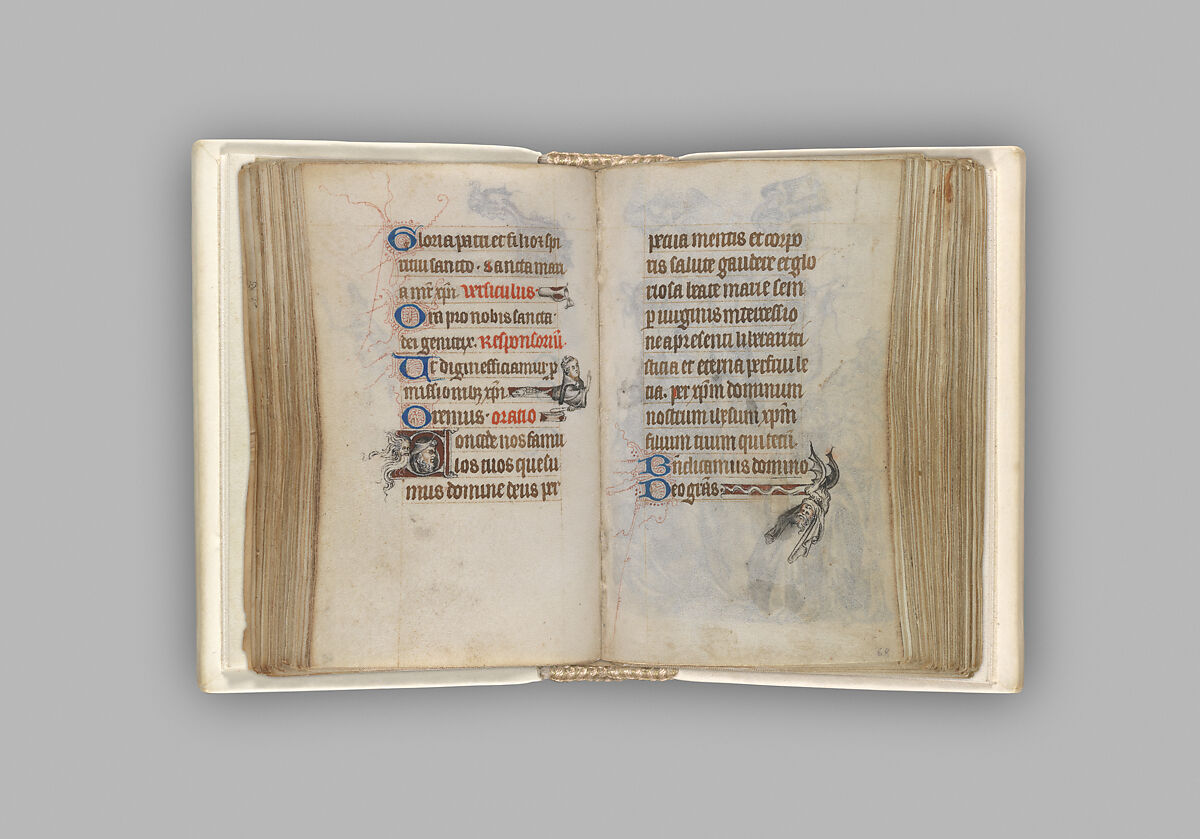 Gloria patri et filio ⁊ spi
ritui sancto. Sancta mari
a mr̄ xp̄i Versiculus
Ora pro nobis sancta
dei genitrix. Responsoriū
Ut digni efficiamur p
missionibꝫ xp̄i
Oremus. oratio
Concede nos famu
los tuos quesu
mus domine deus per
petua mentis et corpo
ris salute gaudere et glo
riosa beate marie sem
p uirginis intercessio
ne a presenti liberari tri
sticia et eterna perfrui le
ticia. per xp̄m dominum
nostrum ihesum xp̄m
filium tuum qui tecū
Bn̄dicamus domino
Deo grās
68